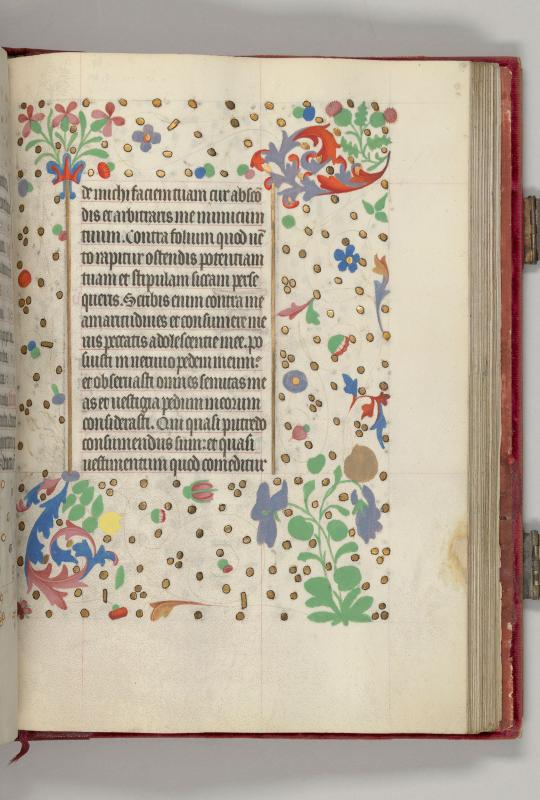 de michi faciem tuam. cur absco
dis et arbitraris me inimicum
tuum. Contra folium quod uē
to rapitur ostendis potentiam
tuam et stipulam siccam perse
queris. Scribis enim contra me
amaritudines et consumere me
uis peccatis adolescentie mee. po
suisti in neruo pedem meum:
et obseruasti omnes semitas me
as et uestigia pedum meorum
considerasti. Qui quasi putredo
consumendus sum: et quasi
uestimentum quod comeditur